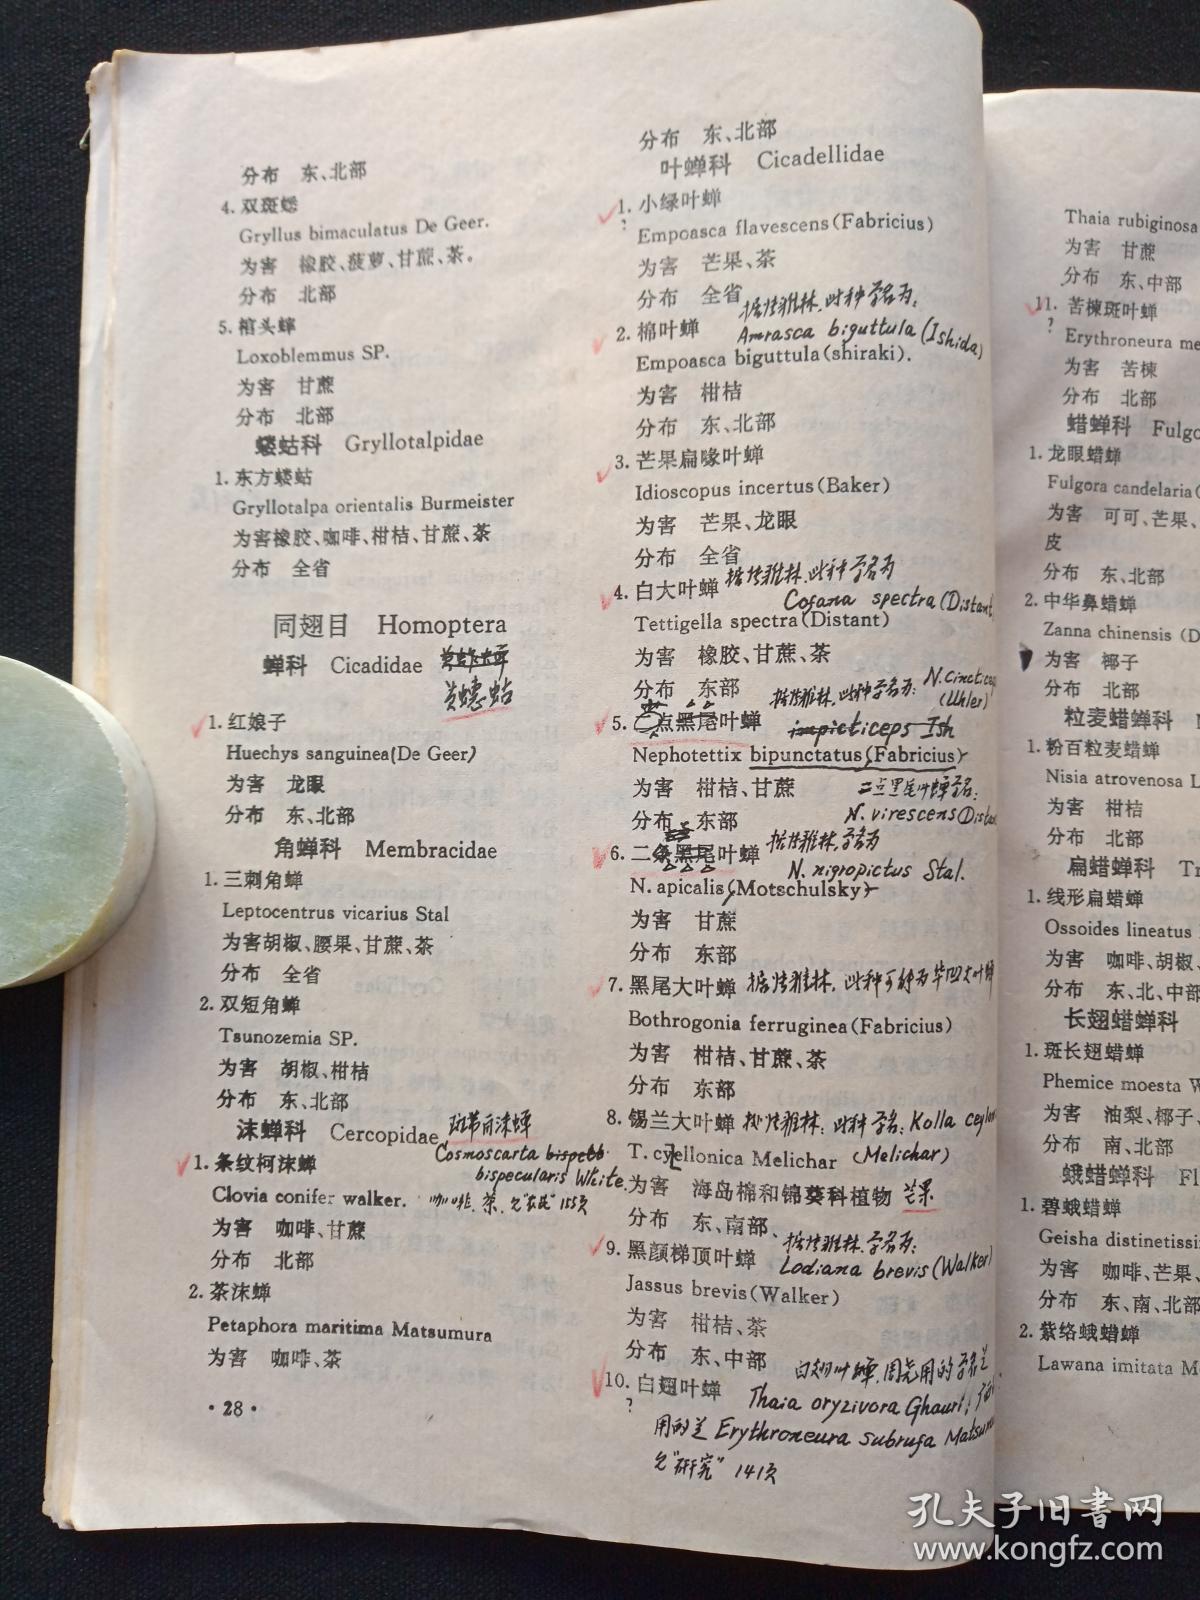 分布 东、北部
4. 双斑蟋
Gryllus bimaculatus De Geer.
为害 橡胶、菠萝、甘蔗、茶。
分布 北部
5. 棺头蟀
Loxoblemmus SP.
为害 甘蔗
分布 北部
蝼蛄科 Gryllotalpidae
1. 东方蝼蛄
Gryllotalpa orientalis Burmeister
为害橡胶、咖啡、柑桔、甘蔗、茶
分布 全省
同翅目 Homoptera
蝉科 Cicadidae
黄蟪蛄
1. 红娘子
Huechys sanguinea(De Geer)
为害 龙眼
分布 东、北部
角蝉科 Membracidae
1. 三刺角蝉
Leptocentrus vicarius Stal
为害胡椒、腰果、甘蔗、茶
分布 全省
2. 双短角蝉
Tsunozemia SP.
为害 胡椒、柑桔
分布 东、北部
沫蝉科 Cercopidae
斑带丽沫蝉
Cosmoscarta
bispecularis White.
1. 条纹柯沫蝉
Clovia conifer walker.
咖啡、茶, 见"农昆" 155页
为害 咖啡、甘蔗
分布 北部
2. 茶沫蝉
Petaphora maritima Matsumura
为害 咖啡、茶
·28·
分布 东、北部
叶蝉科 Cicadellidae
1. 小绿叶蝉
?
Empoasca flavescens(Fabricius)
为害 芒果、茶
分布 全省
雅林, 此种学名为:
2. 棉叶蝉
Amrasca biguttula (Ishida)
Empoasca biguttula(shiraki).
为害 柑桔
分布 东、北部
3. 芒果扁喙叶蝉
Idioscopus incertus(Baker)
为害 芒果、龙眼
分布 全省
4. 白大叶蝉
雅林, 此种学名为
Cofana spectra (Distant
Tettigella spectra(Distant)
为害 橡胶、甘蔗、茶
分布 东部
雅林, 此种学名为: N. cincticeps
(Uhler)
5. 二点黑尾叶蝉
impicticeps Ish
Nephotettix bipunctatus(Fabricius)
为害 柑桔、甘蔗
二点黑尾叶蝉学名:
N. virescens (Distan
分布 东部
6. 二条黑尾叶蝉
雅林, 学名为
N. nigropictus Stal.
N. apicalis(Motschulsky)
为害 甘蔗
分布 东部
7. 黑尾大叶蝉
雅林, 此种可称为华凹大叶蝉
Bothrogonia ferruginea(Fabricius)
为害 柑桔、甘蔗、茶
分布 东部
8. 锡兰大叶蝉
雅林: 此种学名: Kolla ceylon
(Melichar)
T. cyellonica Melichar
为害 海岛棉和锦葵科植物 芒果
分布 东、南部、
雅林, 学名为:
9. 黑颜梯顶叶蝉
Lodiana brevis (Walker)
Jassus brevis(Walker)
为害 柑桔、茶
分布 东、中部
10. 白翅叶蝉
?
白翅叶蝉, 周尧用的学名是
Thaia oryzivora Ghauri;
用的是 Erythroneura subrufa Matsumu
见"研究" 141页
Thaia rubiginosa
为害 甘蔗
分布 东、中部
11. 苦楝斑叶蝉
?
Erythroneura me
为害 苦楝
分布 北部
蜡蝉科 Fulgo
1. 龙眼蜡蝉
Fulgora candelaria(
为害 可可、芒果、
皮
分布 东、北部
2. 中华鼻蜡蝉
Zanna chinensis (D
为害 椰子
分布 北部
粒麦蜡蝉科
1. 粉百粒麦蜡蝉
Nisia atrovenosa L
为害 柑桔
分布 北部
扁蜡蝉科 Tr
1. 线形扁蜡蝉
Ossoides lineatus
为害 咖啡、胡椒、
分布 东、北、中部
长翅蜡蝉科
1. 斑长翅蜡蝉
Phemice moesta W
为害 油梨、椰子、
分布 南、北部
蛾蜡蝉科 Fl
1. 碧蛾蜡蝉
Geisha distinetissi
为害 咖啡、芒果、
分布 东、南、北部
2. 紫络蛾蜡蝉
Lawana imitata M
孔夫子旧书网
www.kongfz.com